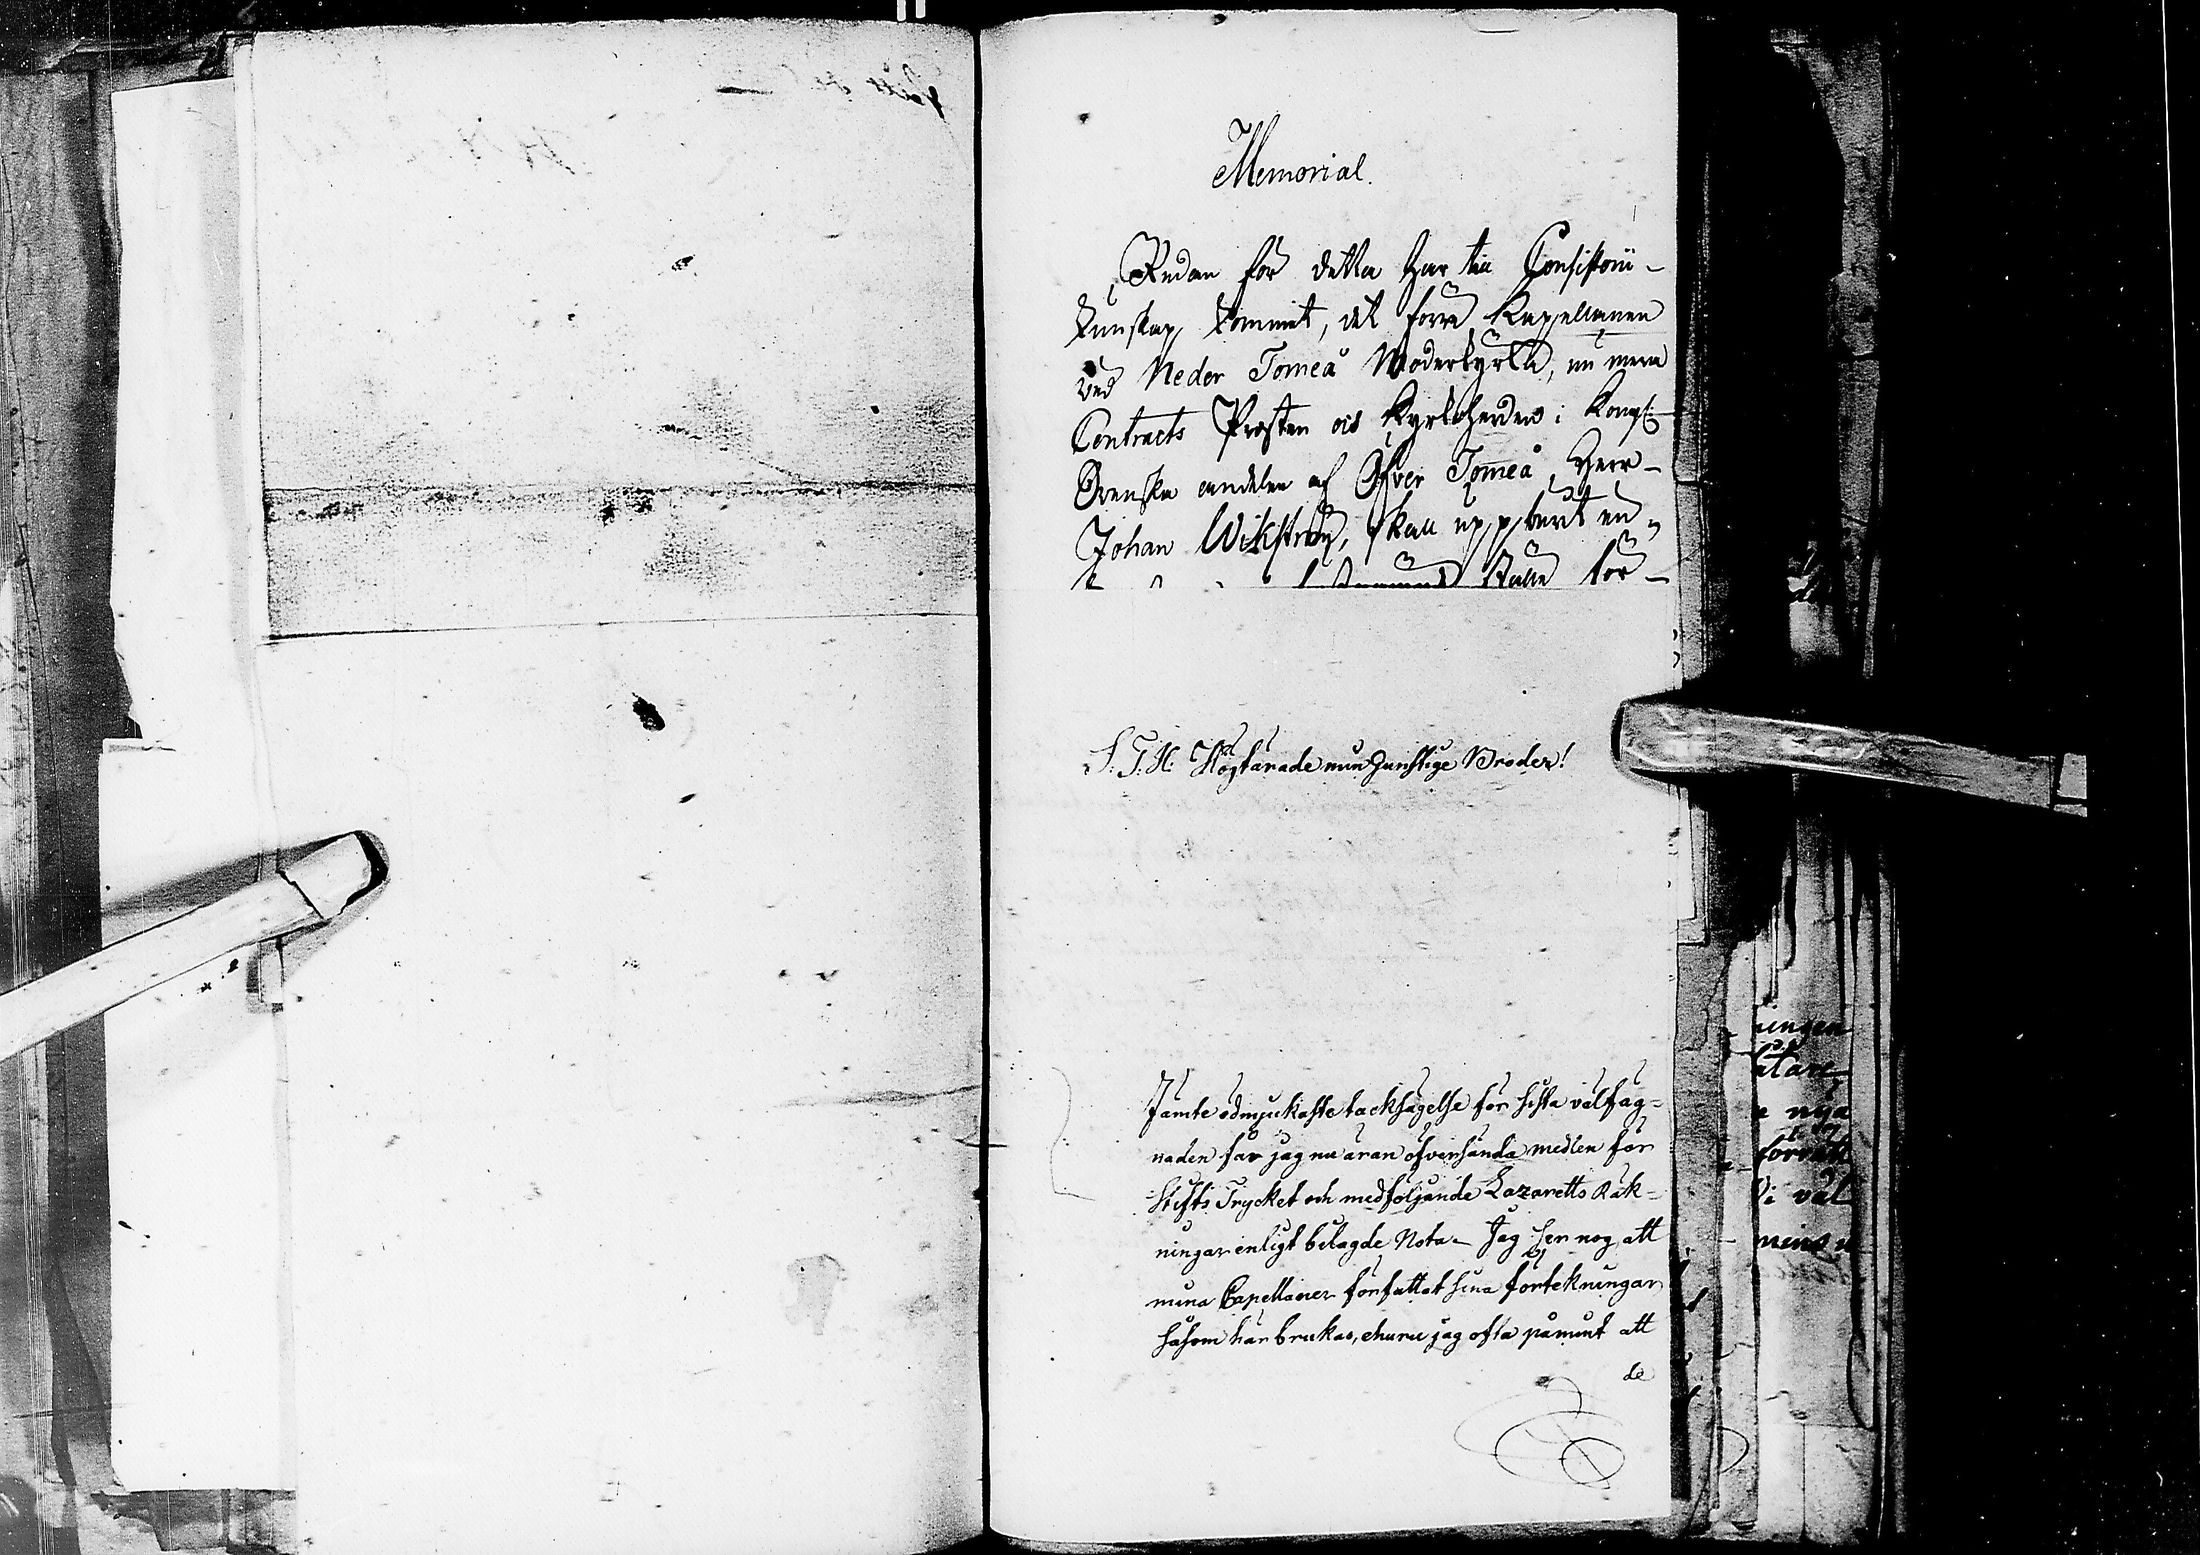 Memorial.
Redan för detta har till Consistorii
kunskap kommit, det förra Kapellanen
vid Neder Torneå Moderkyrka, nu mera
Contracts Prosten och Kyrkoherden i Kongl.
Svenska andelen af Öfver Torneå, Herr
Johan Wikström, skall uppburit en
för-
S. T. H. Högtärade mine Gunstige Broder!
Jämte ödmjukaste tacksägelse för sista välfäg-
naden får jag nu äran öfversända medlen för
Stifts Trycket och medföljande Lazaretts Räk-
ningar enligt bilagde Nota. Jag ser nog att
mina Capellaner författat sina förtekningar
såsom här brukas, ehuru jag ofta påmint att
de
ningen
nya
förrätt
Vi väl